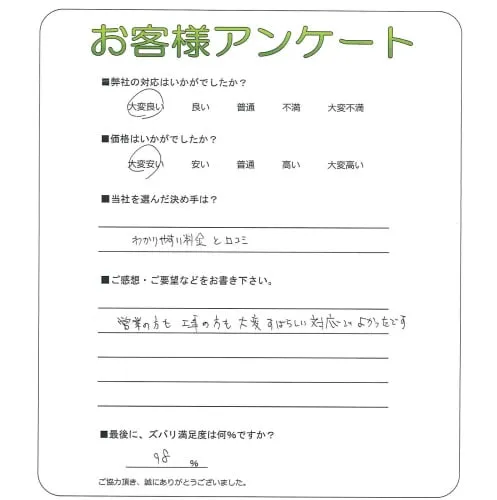 お客様アンケート
■弊社の対応はいかがでしたか?
大変良い 良い 普通 不満 大変不満
■価格はいかがでしたか?
大変安い 安い 普通 高い 大変高い
■当社を選んだ決め手は?
わかりやすい料金と口コミ
■ご感想・ご要望などをお書き下さい。
営業の方も 工事の方も 大変 すばらしい 対応で よかったです
■最後に、ズバリ満足度は何%ですか?
98 %
ご協力頂き、誠にありがとうございました。